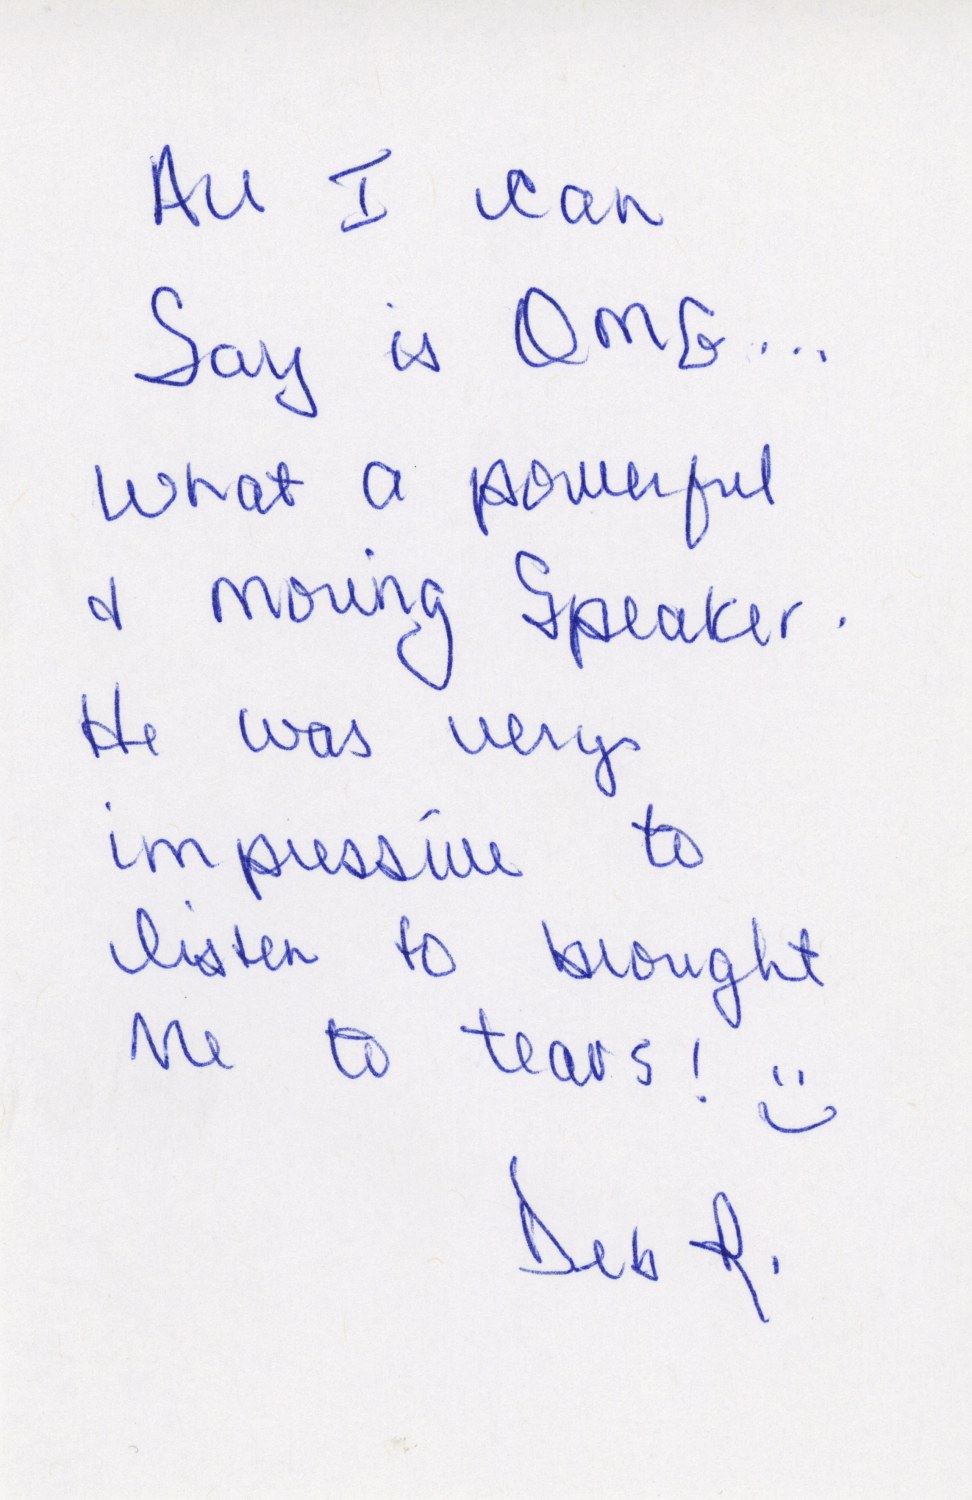 All I can
Say is OMG...
What a powerful
& moving Speaker.
He was very
impressive to
listen to brought
Me to tears! :)
Deb R.